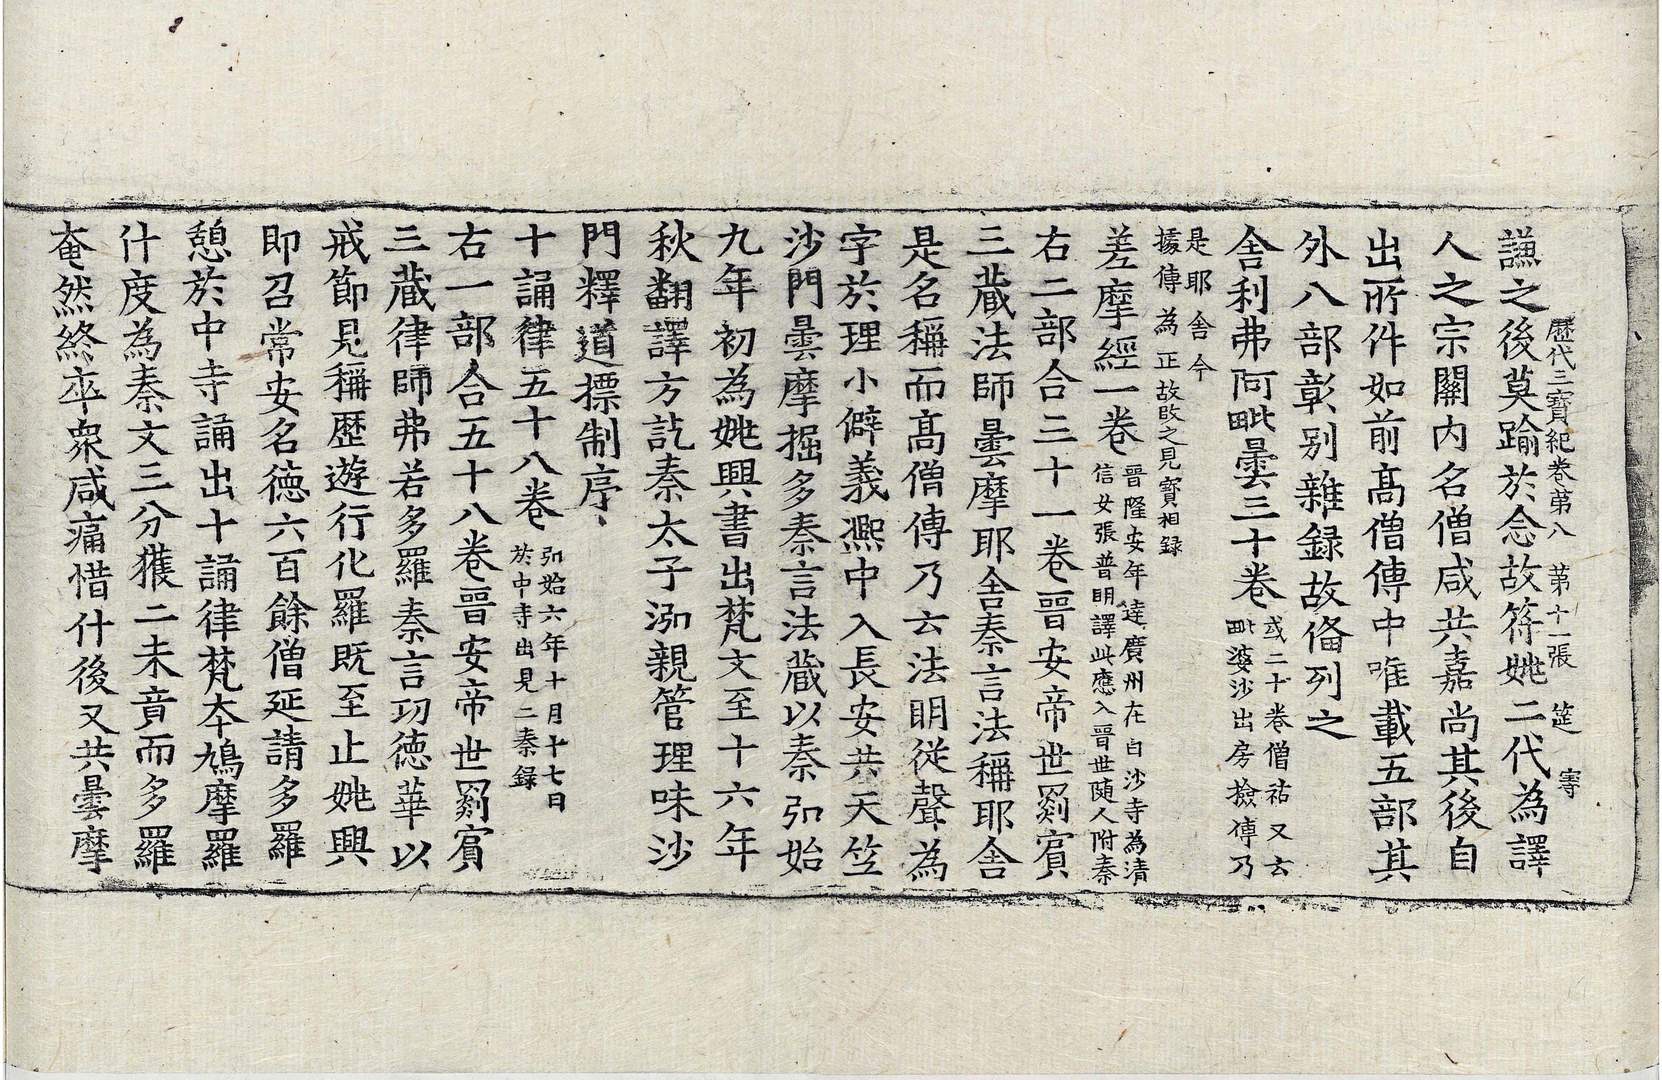 歷代三寶紀卷第八　第十一張　筵　寄
讖之後莫踰於念故符姚二代為譯
人之宗關內名僧咸共嘉尚其後自
出所件如前高僧傳中唯載五部其
外八部彰別雜録故俻列之
舍利弗阿毗曇三十卷
或二十卷僧祐又云
毗婆沙出房撿傳乃
是耶舍今
據傳為正故改之見寶相録
差摩經一卷
晉隆安年達廣州在白沙寺為清
信女張普明譯此應入晉世随人附秦
右二部合三十一卷晉安帝世罽賓
三藏法師曇摩耶舍秦言法稱耶舍
是名稱而高僧傳乃云法明從聲為
字於理小僻義熈中入長安共天竺
沙門曇摩掘多秦言法藏以秦弘始
九年初為姚興書出梵文至十六年
秋翻譯方訖秦太子泓親管理味沙
門釋道摽制序
十誦律五十八卷
弘始六年十月十七日
於中寺出見二秦録
右一部合五十八卷晉安帝世罽賓
三藏律師弗若多羅秦言功徳華以
戒節見稱歷遊行化羅既至止姚興
即召常安名徳六百餘僧延請多羅
憩於中寺誦出十誦律梵夲鳩摩羅
什度為秦文三分獲二未竟而多羅
奄然終卒衆咸痛惜什後又共曇摩